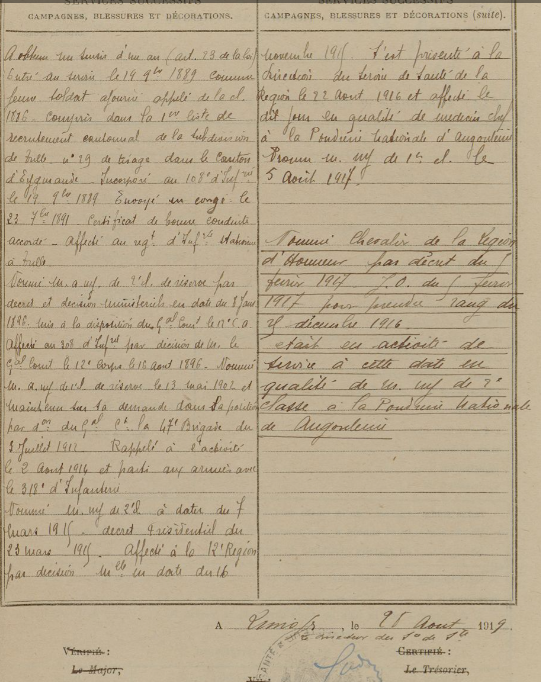 SERVICES SUCCESSIFS
CAMPAGNES, BLESSURES ET DÉCORATIONS.
A obtenu un sursis d'un an (art. 23 de la loi)
Entré au service le 19 9bre 1889 comme
jeune soldat ajourné appelé de la cl.
1886. Compris dans la 1ère liste de
recrutement cantonal de la subdivision
de Tulle, n° 29 de tirage dans le canton
d'Eygurande. Incorporé au 108e d'Infrie
le 19 9bre 1889. Envoyé en congé le
23 7bre 1891 Certificat de bonne conduite
accordé - Affecté au régt d'Infrie stationné
à Tulle
Nommé m. a. mj. de 2e cl. de réserve par
décret et décision ministérielle en date du 8 Janv
1896. mis à la disposition du Gal Comt le 12e C. A.
Affecté au 308 d'Infrie par décision de M. le
Gal Comt le 12e Corps le 18 aout 1896. Nommé
m. a. mj de cl. de réserve le 13 mai 1902 et
maintenu sur sa demande dans sa position
par du Gal Ct la 47e Brigade du
3 Juillet 1912. Rappelé à l'activité
le 2 Aout 1914 et parti aux armées avec
le 318e d'Infanterie
Nommé m. mj de 2e cl à dater du 7
mars 1915 - décret présidentiel du
23 mars 1915. Affecté à la 12e Région
par décision Mlle en date du 16
SERVICES SUCCESSIFS
CAMPAGNES, BLESSURES ET DÉCORATIONS (suite).
novembre 1915. S'est présenté à la
direction du service de Santé de la
Région le 22 Aout 1916 et affecté le
dit jour en qualité de médecin chef
à la Poudrerie Nationale d'Angoulême
Promu m. mj de 1re cl. le
5 Août 1917
Nommé Chevalier de la Légion
d'Honneur par décret du 5
février 1917 J. O. du 5 février
1917 pour prendre rang du
25 décembre 1916.
était en activité de
service à cette date en
qualité de m. mj de 2e
classe à la Poudrerie Nationale
de Angoulême
A Limoges, le 28 Aout 1919.
Le Directeur du Sce de Sté
VÉRIFIÉ :
Le Major,
CERTIFIÉ :
Le Trésorier,